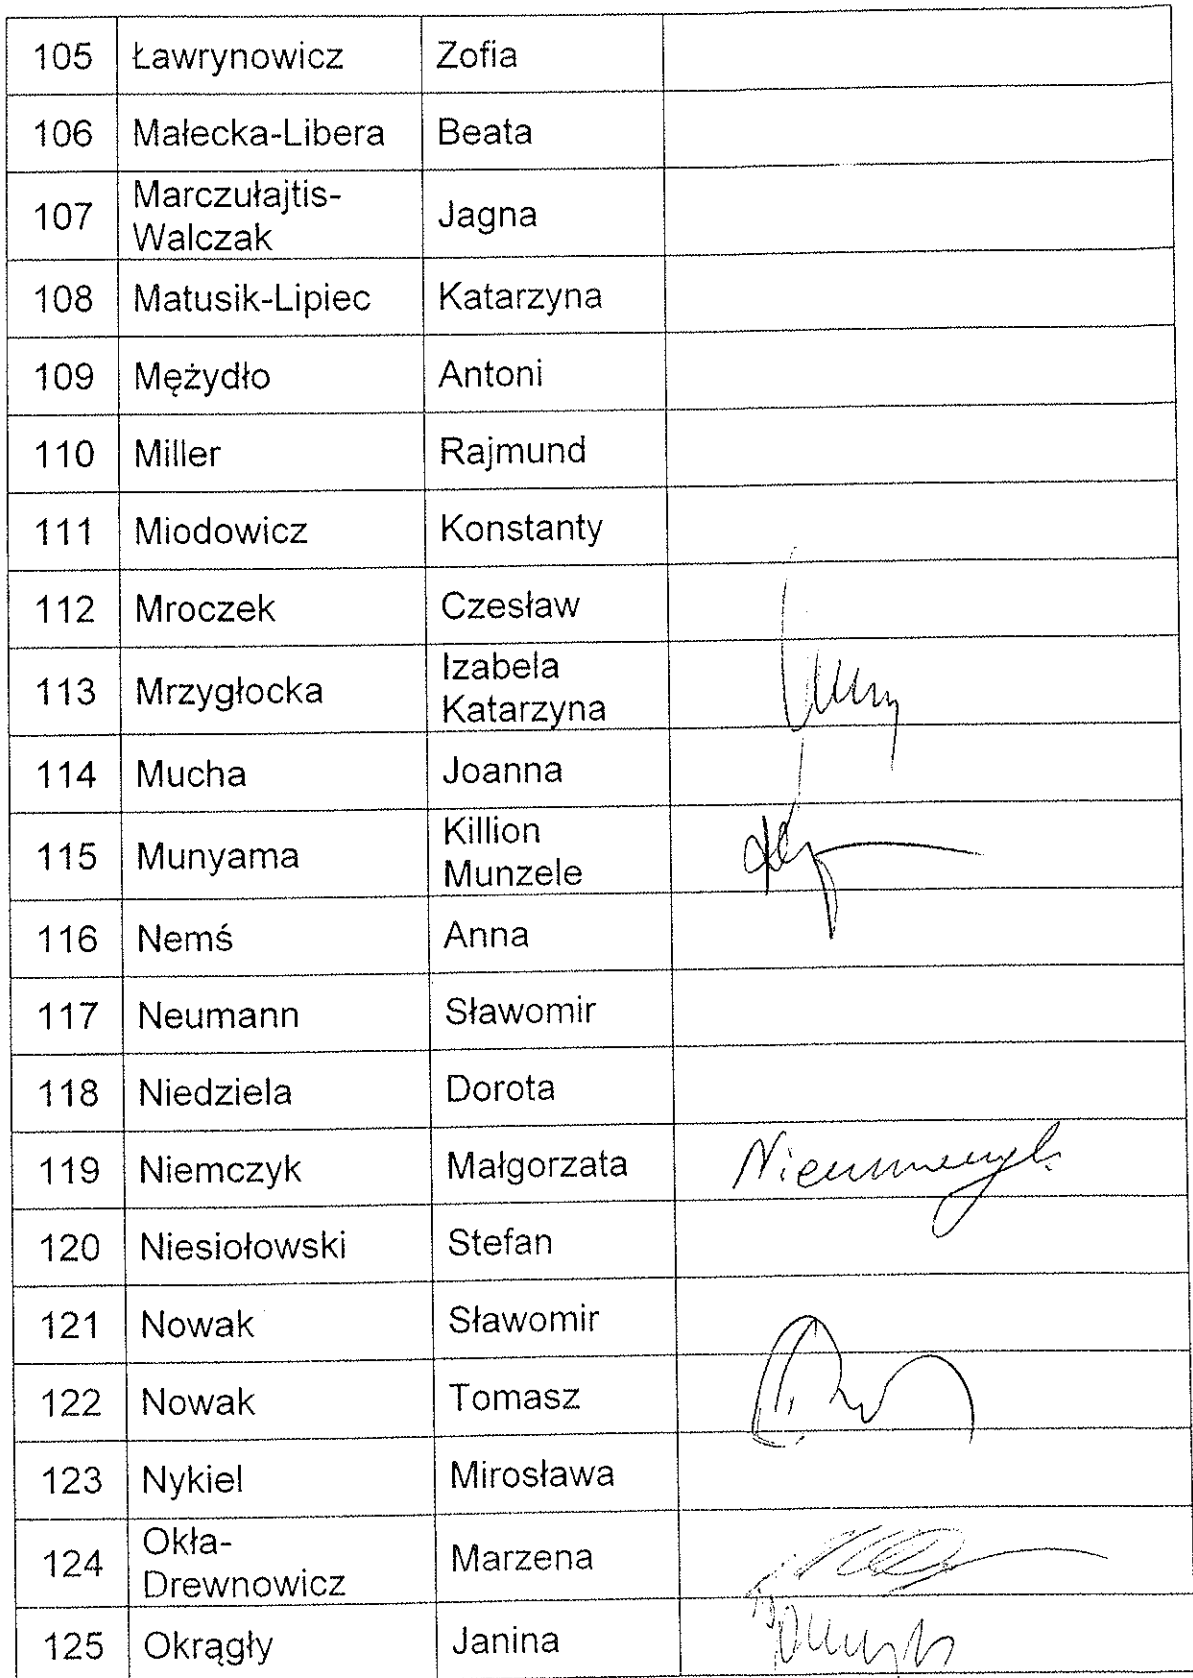 105 Ławrynowicz Zofia
106 Małecka-Libera Beata
107 Marczułajtis-
Walczak Jagna
108 Matusik-Lipiec Katarzyna
109 Mężydło Antoni
110 Miller Rajmund
111 Miodowicz Konstanty
112 Mroczek Czesław
113 Mrzygłocka Izabela
Katarzyna
114 Mucha Joanna
115 Munyama Killion
Munzele
116 Nemś Anna
117 Neumann Sławomir
118 Niedziela Dorota
119 Niemczyk Małgorzata Niemczyk
120 Niesiołowski Stefan
121 Nowak Sławomir
122 Nowak Tomasz
123 Nykiel Mirosława
124 Okła-
Drewnowicz Marzena
125 Okrągły Janina